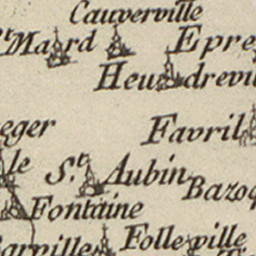 Cauverville
St. Maard
Epre
Heudrevil
eger
Favril
le
St. Aubin
Bazoq
Fontaine
Folleville
arville